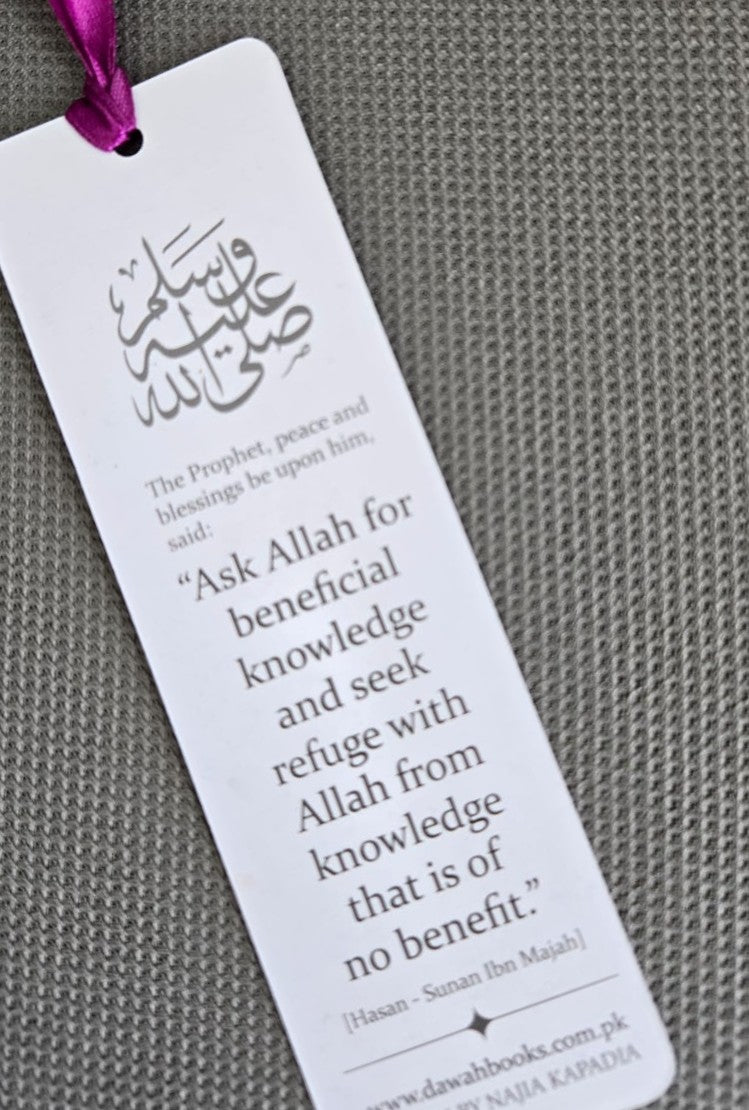 صلى الله
عليه
وسلم
The Prophet, peace and
blessings be upon him,
said:
“Ask Allah for
beneficial
knowledge
and seek
refuge with
Allah from
knowledge
that is of
no benefit.”
[Hasan - Sunan Ibn Majah]
www.dawahbooks.com.pk
BY NAJIA KAPADIA